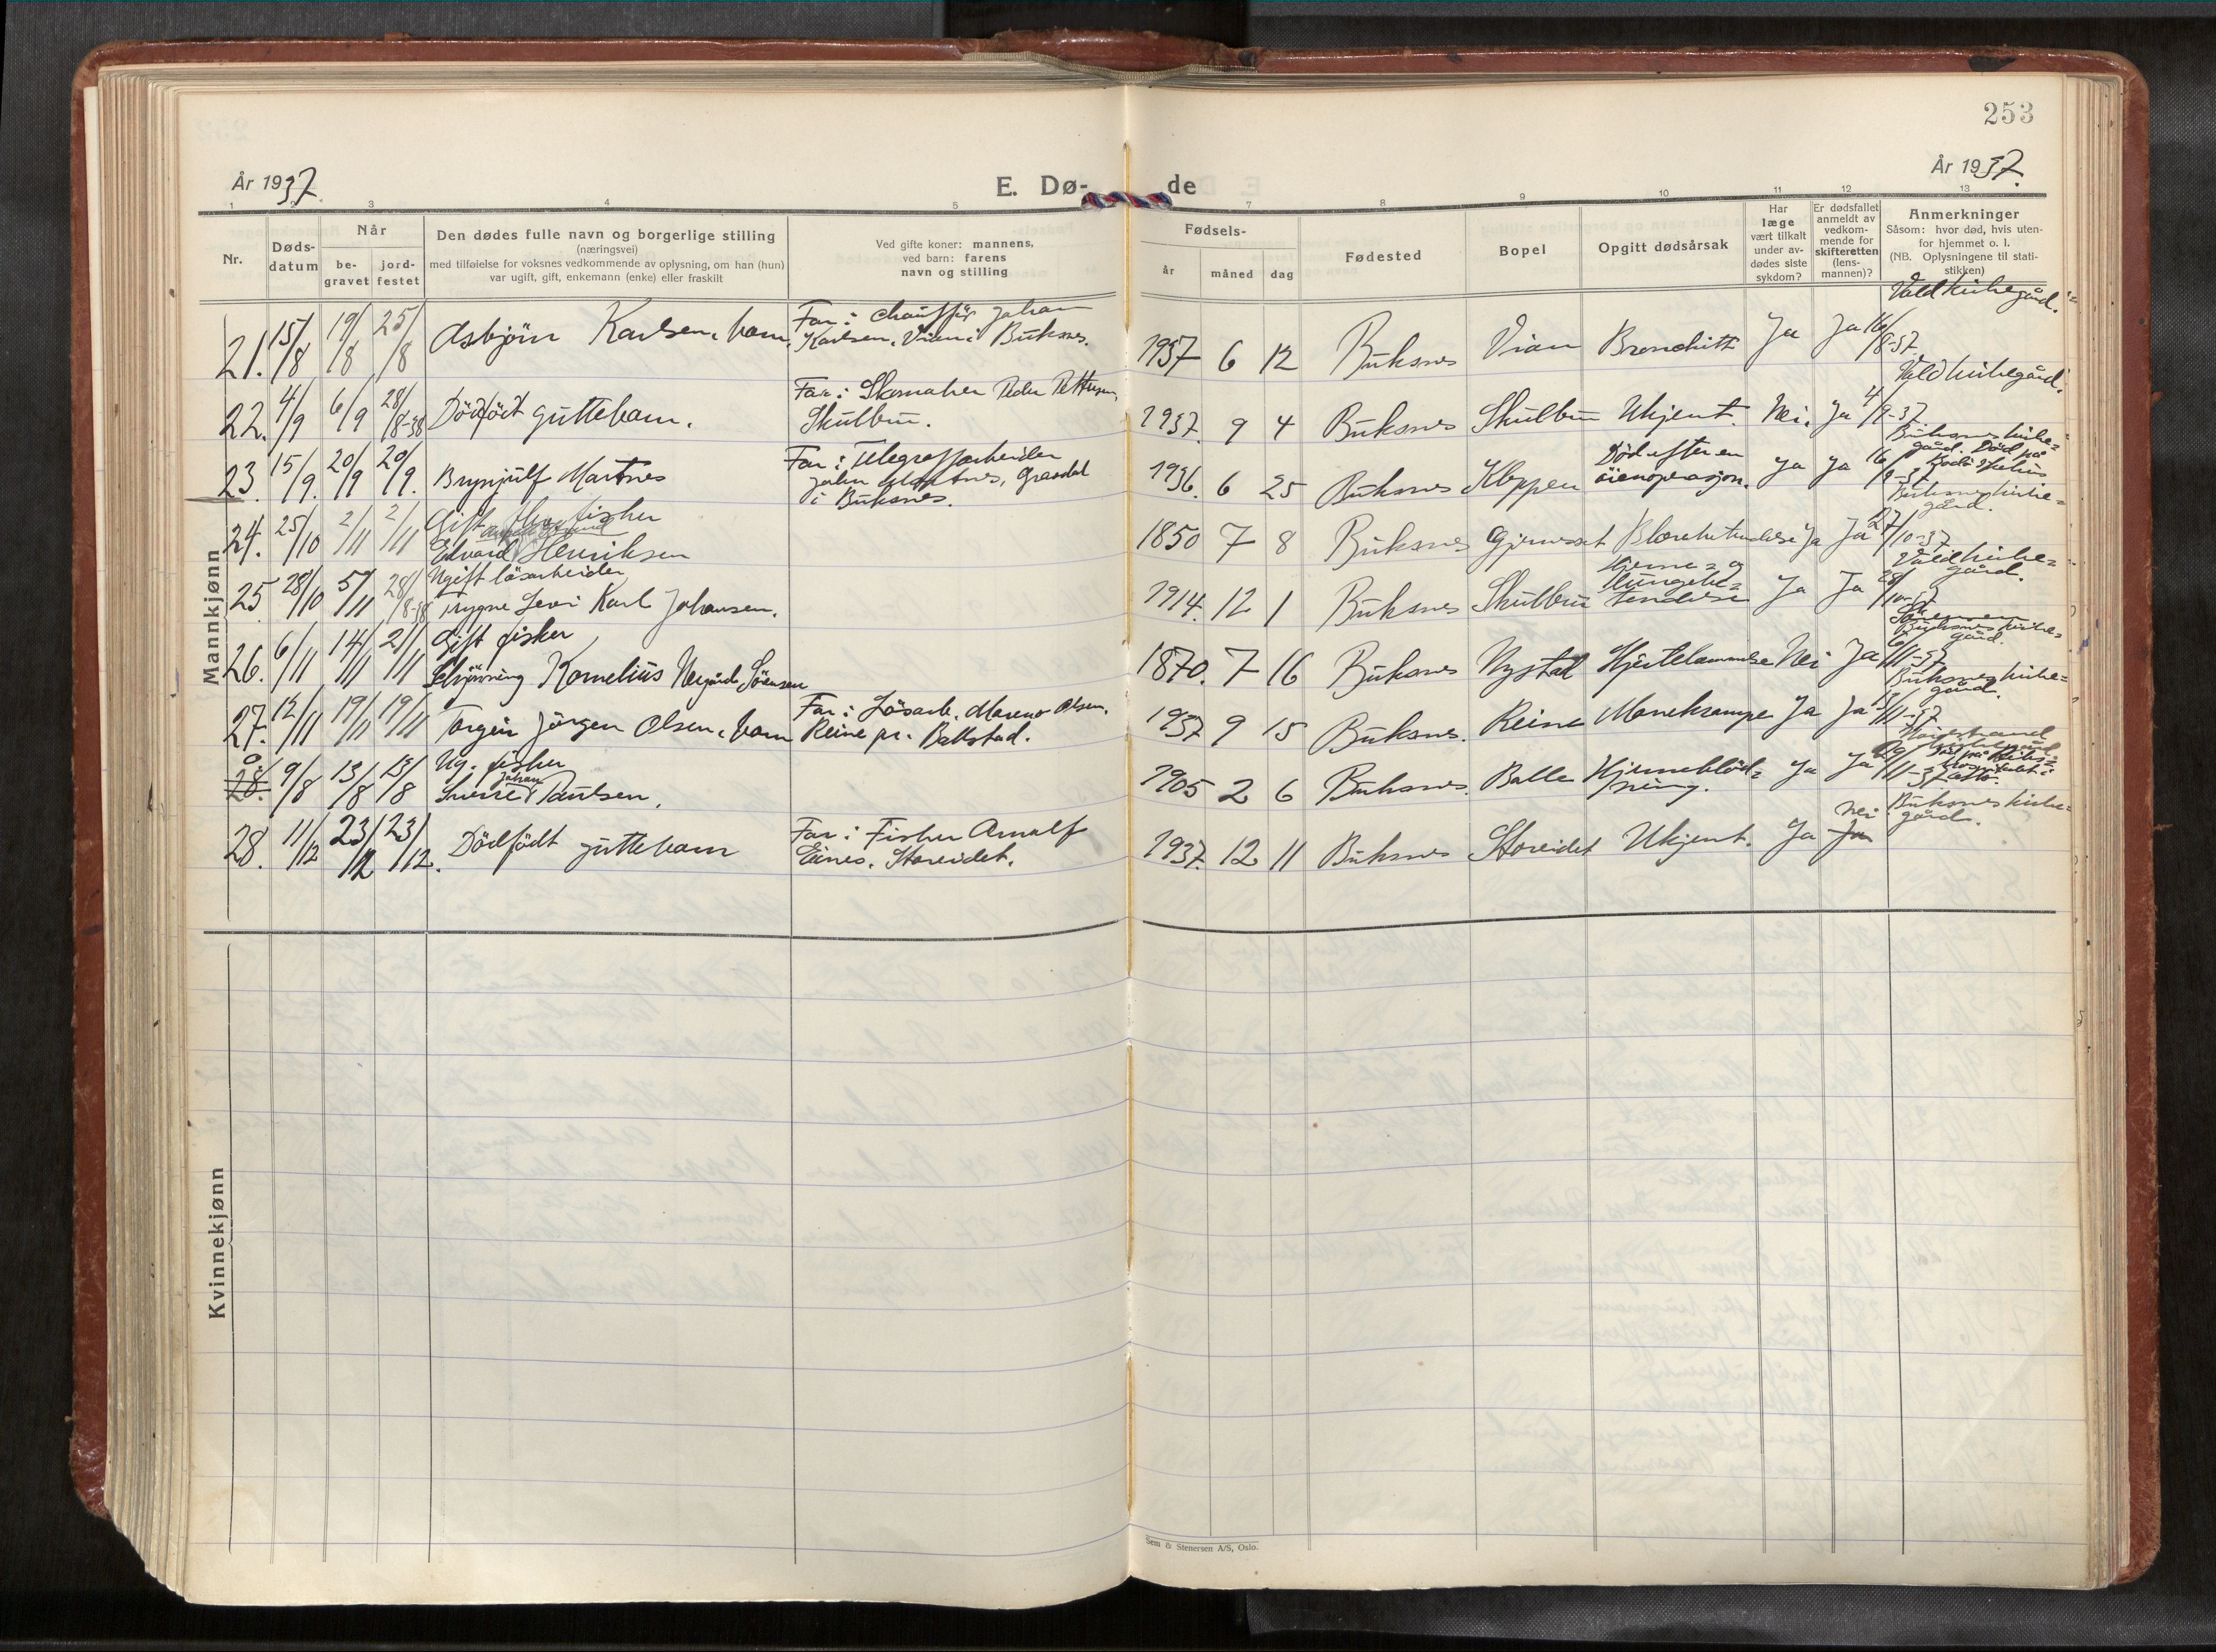 253
År 1937.
E. Dø-
de
År 1937.
1 2 3 4 5 7 8 9 10 11 12 13
Nr.
Døds-
datum
Når
be-
gravet
jord-
festet
Den dødes fulle navn og borgerlige stilling
(næringsvei)
med tilføielse for voksnes vedkommende av oplysning, om han (hun)
var ugift, gift, enkemann (enke) eller fraskilt
Ved gifte koner: mannens,
ved barn: farens
navn og stilling
Fødsels-
år
måned
dag
Fødested
Bopel
Opgitt dødsårsak
Har
læge
vært tilkalt
under av-
dødes siste
sykdom?
Er dødsfallet
anmeldt av
vedkom-
mende for
skifteretten
(lens-
mannen)?
Anmerkninger
Såsom: hvor død, hvis uten-
for hjemmet o. l.
(NB. Oplysningene til stati-
stikken)
Mannkjønn
21. 15/8 19/8 25/8 Asbjørn Karlsen, barn.
Far: Chauffør Johan
Karlsen, Vian i Buksnes.
1937 6 12 Buksnes Vian Bronchitt Ja Ja 16/8-37
Vold kirkegård.
22. 4/9 6/9 28/8-38 Dødfødt guttebarn.
Far: Skomaker Peder Pettersen,
Skulbru.
1937. 9 4 Buksnes Skulbru Ukjent. Nei. Ja 4/9-37
Vold kirkegård.
23. 15/9. 20/9 20/9. Brynjulf Martnes
Far: Telegrafarbeider
John Martnes, Gravdal
i Buksnes.
1936. 6 25 Buksnes Kleppen
Død efter en
øienoperasjon.
Ja Ja 16/9-37
Buksnes kirke-
gård. Død på
Bodø sykehus
24. 25/10 2/11 2/11
Gift fisker
Edvard Henriksen
1850 7 8 Buksnes Gjerresset Blærebetendelse Ja Ja 27/10-37
Buksnes kirke-
gård.
25 28/10 5/11 28/8-38
Ugift løsarbeider
Trygve Levi Karl Johansen.
1914. 12 1 Buksnes Skulbru
Hjerne- og
lungebe-
tendelse
Ja Ja 28/10-37
Vold kirke-
gård.
26. 6/11 14/11 21/11
Gift fisker
Kornelius Nergård Sørensen
1870. 7 16 Buksnes Nystad Hjertelammelse Nei Ja 6/11-37
Buksnes kirke-
gård.
27. 12/11 19/11 19/11 Torgeir Jørgen Olsen, barn
Far: Løsarb. Olsen,
Reine pr. Ballstad.
1937 9 15 Buksnes. Reine Mavekrampe Ja Ja 13/11-37
Buksnes kirke-
gård.
0.
28. 9/8 13/8 13/8
Ug. fisker
Johan
Sverre Paulsen.
1905 2 6 Buksnes. Balle
Hjerneblød-
ning.
Ja Ja
28. 11/12 23/12 23/12. Dødfødt guttebarn
Far: Fisker Arnulf
Eines, Storeidet.
1937. 12 11 Buksnes Storeidet Ukjent. Ja
Nei
Ja
Buksnes kirke-
gård.
Kvinnekjønn
Sem & Stenersen A/S, Oslo.